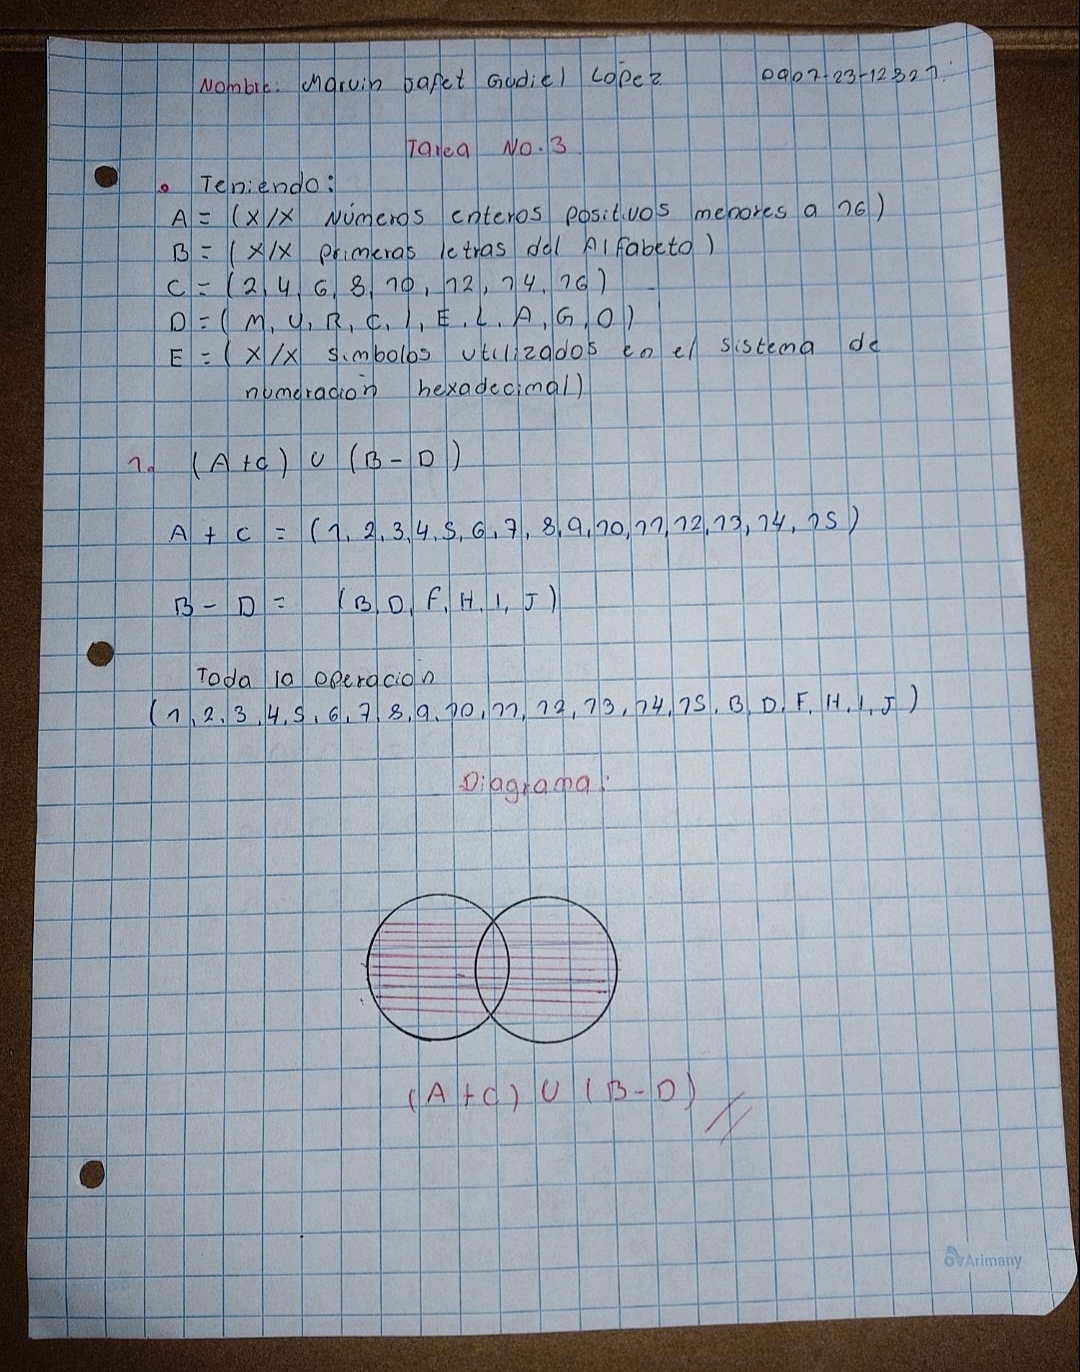 Nombre: Marvin Jafet Gudiel López 0907-23-12321.
Tarea No. 3
• Teniendo:
A = (x/x Números enteros positivos menores a 16)
B = (x/x primeras letras del Alfabeto)
C = (2, 4, 6, 8, 10, 12, 14, 16)
D = (M, U, R, C, I, E, L, A, G, O)
E = (x/x simbolos utilizados en el sistema de
numeración hexadecimal)
1. (A + C) ∪ (B - D)
A + C = (1, 2, 3, 4, 5, 6, 7, 8, 9, 10, 11, 12, 13, 14, 15)
B - D = (B, D, F, H, I, J)
Toda la operación
(1, 2, 3, 4, 5, 6, 7, 8, 9, 10, 11, 12, 13, 14, 15, B, D, F, H, I, J)
Diagrama:
(A + C) ∪ (B - D)
Arimany